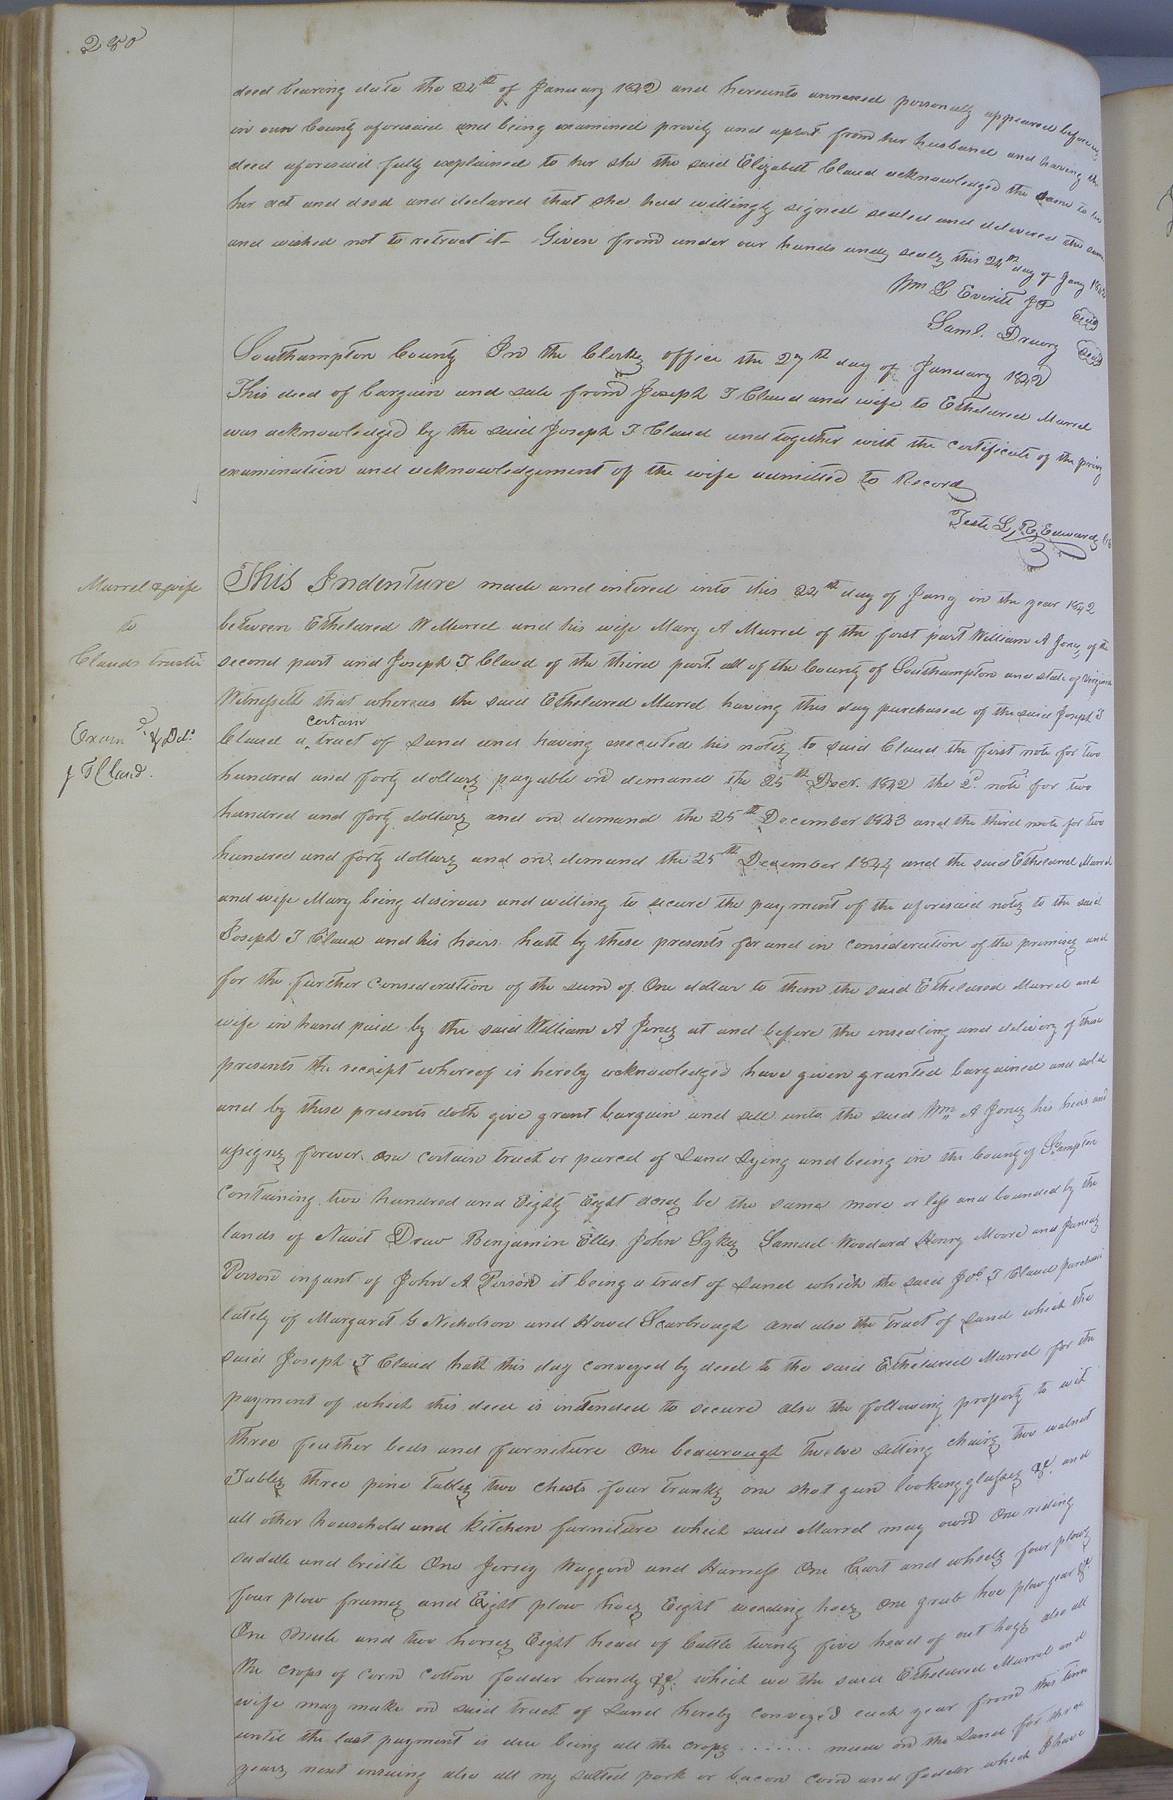 280
deed bearing date the 24th of January 1842 and hereunto annexed personally appeared before us
in our County aforesaid and being examined privily and apart from her husband and having the
deed aforesaid fully explained to her she the said Elizabeth Claud acknowledged the same to be
her act and deed and declared that she had willingly signed sealed and delivered the same
and wished not to retract it - Given from under our hands and seals this 24th day of Jany 1842
Wm G Everitt JP Seal
Saml. Drewry Seal
Southampton County In the Clerks office the 27th day of January 1842
This deed of bargain and sale from Joseph T Claud and wife to Etheldred Murrel
was acknowledged by the said Joseph T Claud and together with the Certificate of the privy
examination and acknowledgement of the wife admitted to Record
Teste L, R, Edwards Clk
Murrel & wife
to
Clauds trustee
Exam d & Del.
J T Claud.
This Indenture made and intered into this 24th day of Jany in the year 1842
between Etheldred W Murrel and his wife Mary A Murrel of the first part William A Jones of the
second part and Joseph T Claud of the third part all of the County of Southampton and state of Virginia
Witnesseth that whereas the said Etheldred Murrel having this day purchased of the said Joseph T
Claud a certain tract of Land and having executed his notes to said Claud the first note for two
hundred and forty dollars payable on demand the 25th Decr. 1842 the 2d. note for two
hundred and forty dollars and on demand the 25th December 1843 and the third note for two
hundred and forty dollars and on demand the 25th December 1844 and the said Etheldred Murrel
and wife Mary being desirous and willing to secure the payment of the aforesaid notes to the said
Joseph T Claud and his heirs hath by these presents for and in consideration of the premises and
for the further consideration of the sum of One dollar to them the said Etheldred Murrel and
wife in hand paid by the said William A Jones at and before the ensealing and delivery of these
presents the receipt whereof is hereby acknowledged have given granted bargained and sold
and by these presents doth give grant bargain and sell unto the said Wm A Jones his heirs and
assigns forever one certain tract or parcel of Land Lying and being in the County of Sampton
Containing two hundred and Eighty Eight acres be the same more or less and bounded by the
lands of Newit Drew Benjamin Elles John Sykes Samuel Woodard Henry Moore and
Person infant of John A Person it being a tract of Land which the said Jos T Claud purchased
lately of Margaret G Nicholson and Howel Scarbrough and also the tract of Land which the
said Joseph T Claud hath this day conveyed by deed to the said Etheldred Murrel for the
payment of which this deed is intended to secure also the following property to wit
three feather beds and furniture One beauraugh Twelve setting chairs two walnut
Tables three pine Tables two chests four Trunks one shot gun looking glasses &c. and
all other household and Kitchen furniture which said Murrel may own One riding
saddle and bridle One Jersey Waggon and Harness One Cart and wheels four plows
four plow frames and Eight plow hoes Eight weeding hoes One grub hoe plow gear &c
One Mule and two horses Eight head of Cattle twenty five head of out hogs also all
the crops of corn cotton fodder brandy &c. which we the said Etheldred Murrel and
wife may make on said tract of Land hereby conveyed each year from this time
until the last payment is due being all the crops ....... made on the Land for three
years next ensuing also all my salted pork or bacon corn and fodder which I have